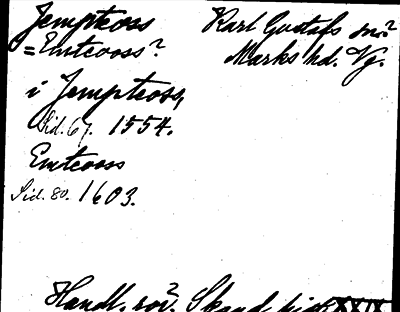 Jempteoss Karl Gustafs sn?
=Emteoss? Marks hd. Vg.
i Jempteoss,
Sid. 67. 1554.
Emteoss
Sid. 80. 1603.
Handl. rör? Skand. hist. XXIX